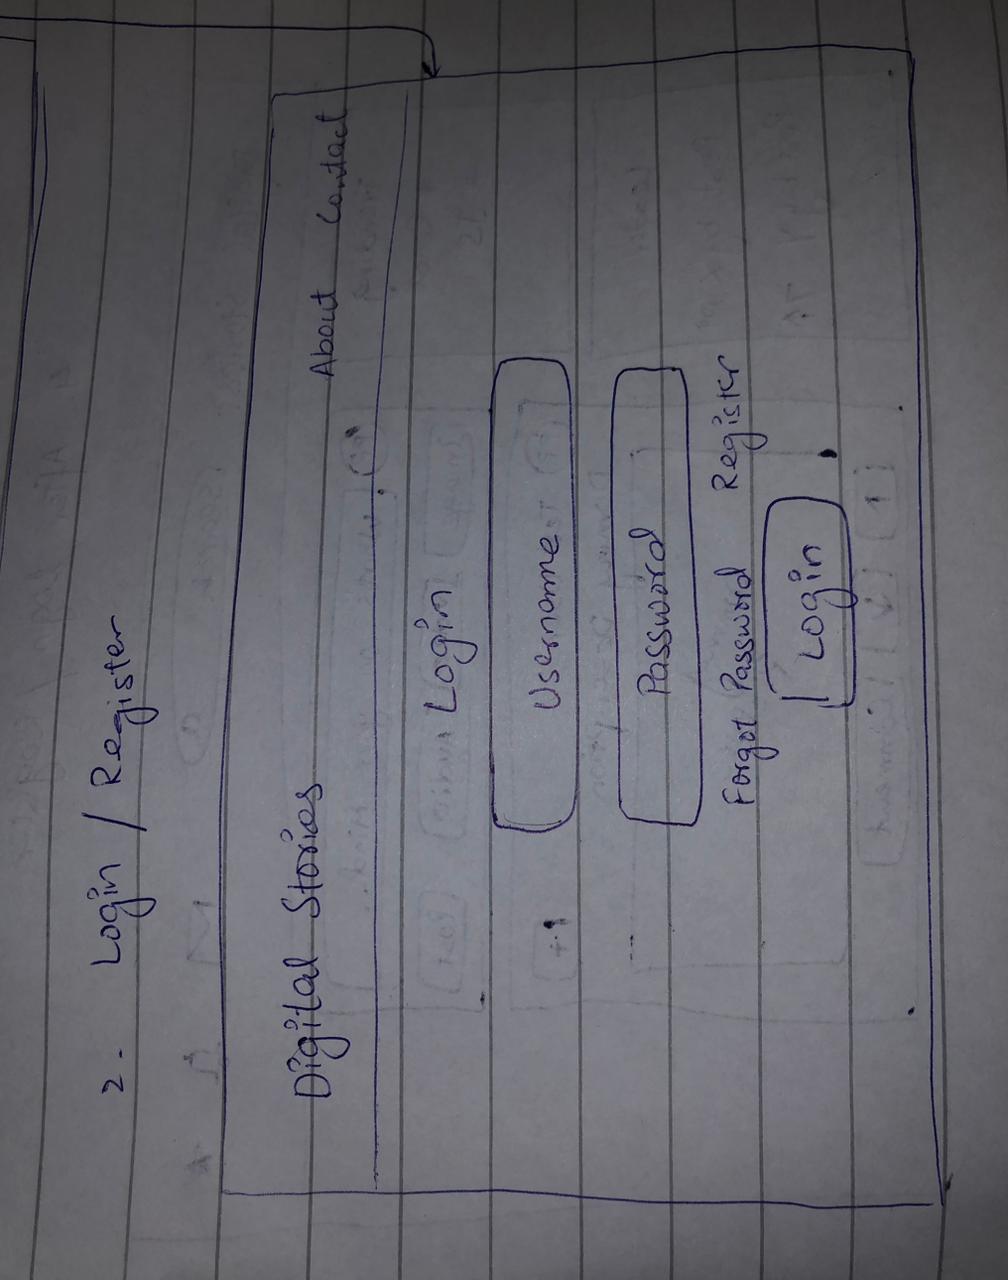 2. Login / Register
Digital Stories About Contact
Login
Username
Password
Forgot Password Register
Login